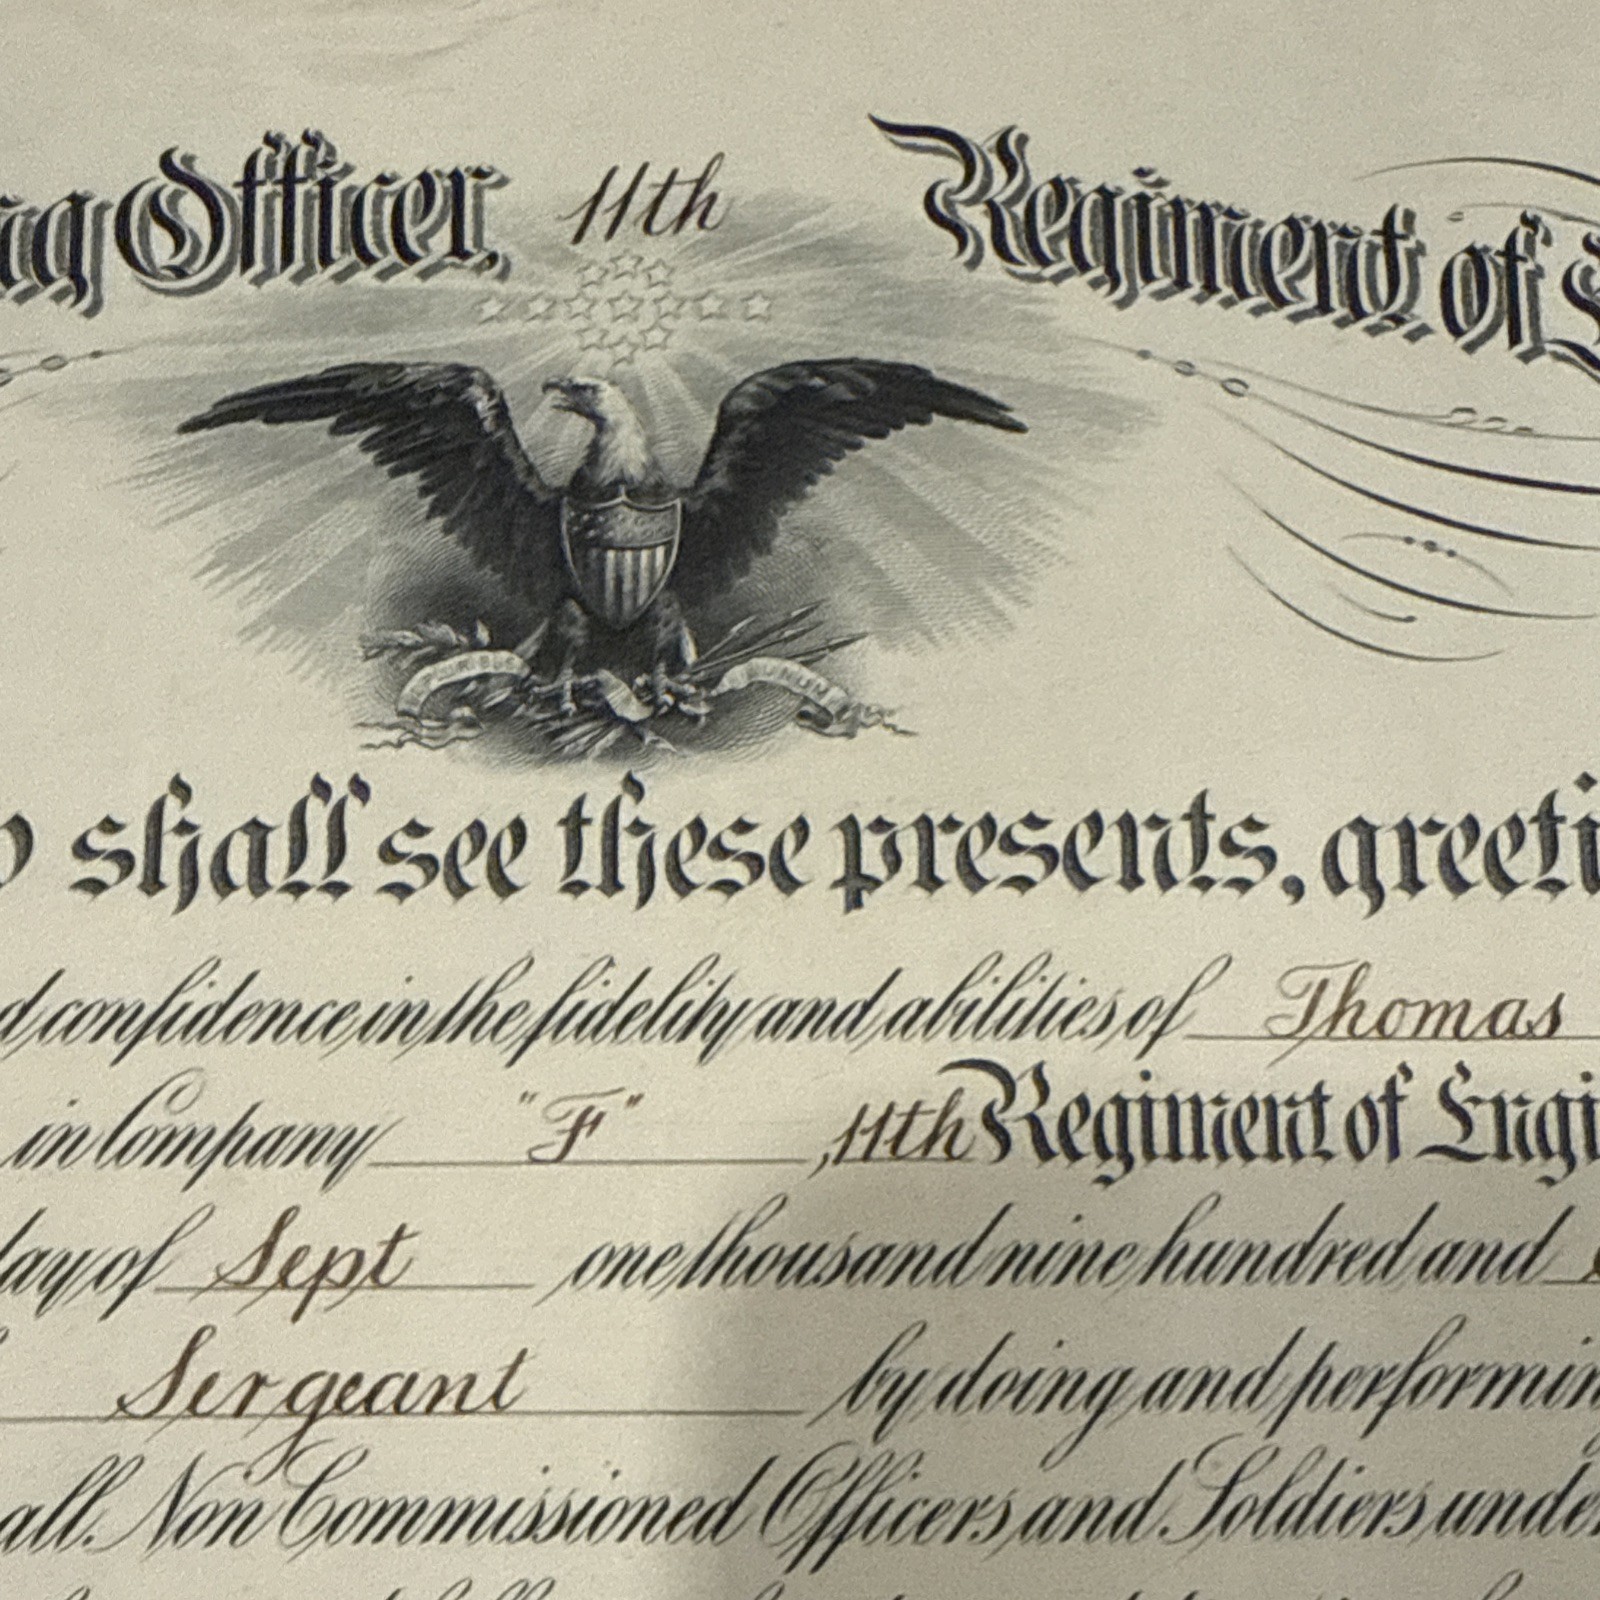 Officer, 11th Regiment of
E PLURIBUS UNUM
shall see these presents, greeti
confidence in the fidelity and abilities of Thomas
in Company "F", 11th Regiment of Engi
day of Sept one thousand nine hundred and
Sergeant by doing and performin
all Non Commissioned Officers and Soldiers unde